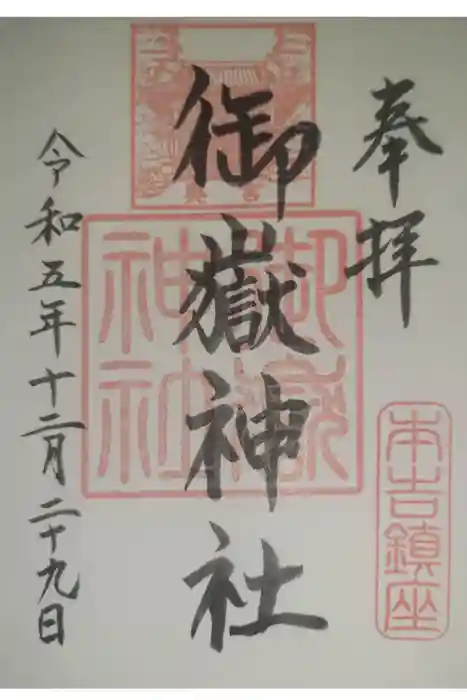 奉拝
本吉鎮座
御嶽神社
御嶽神社
令和五年十二月二十九日